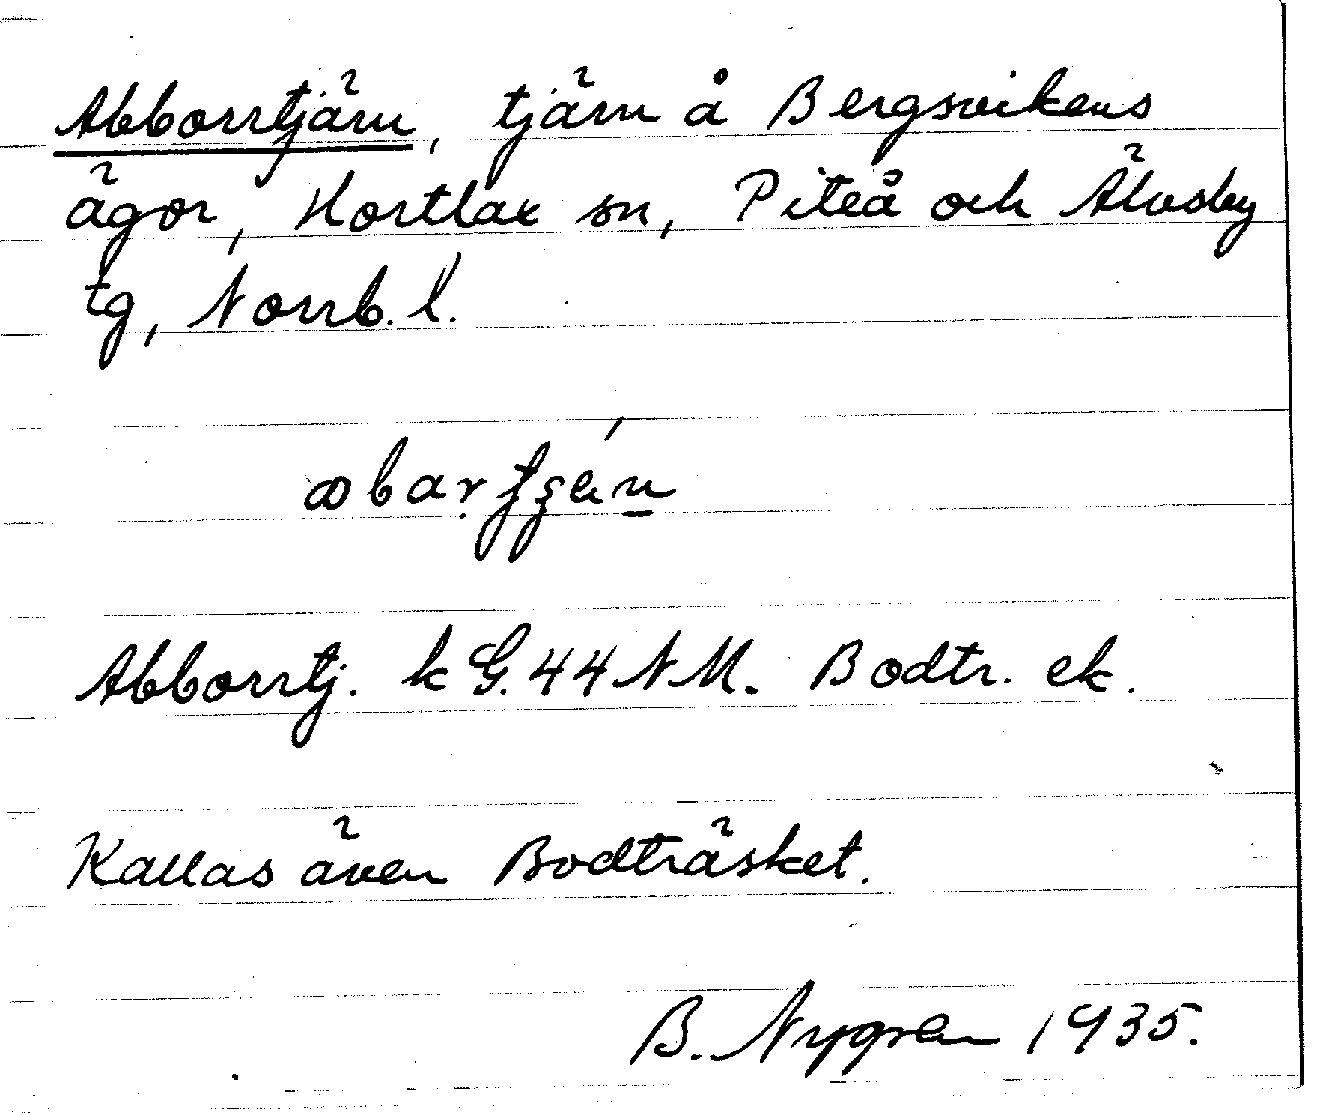 Abborrtjärn, tjärn å Bergsvikens
ägor, Hortlax sn, Piteå och Älvsby
tg, Norrb. l.
Abborrtj. k G. 44 NM. Bodtr. ek.
Kallas även Bodträsket.
B. Nygren 1935.